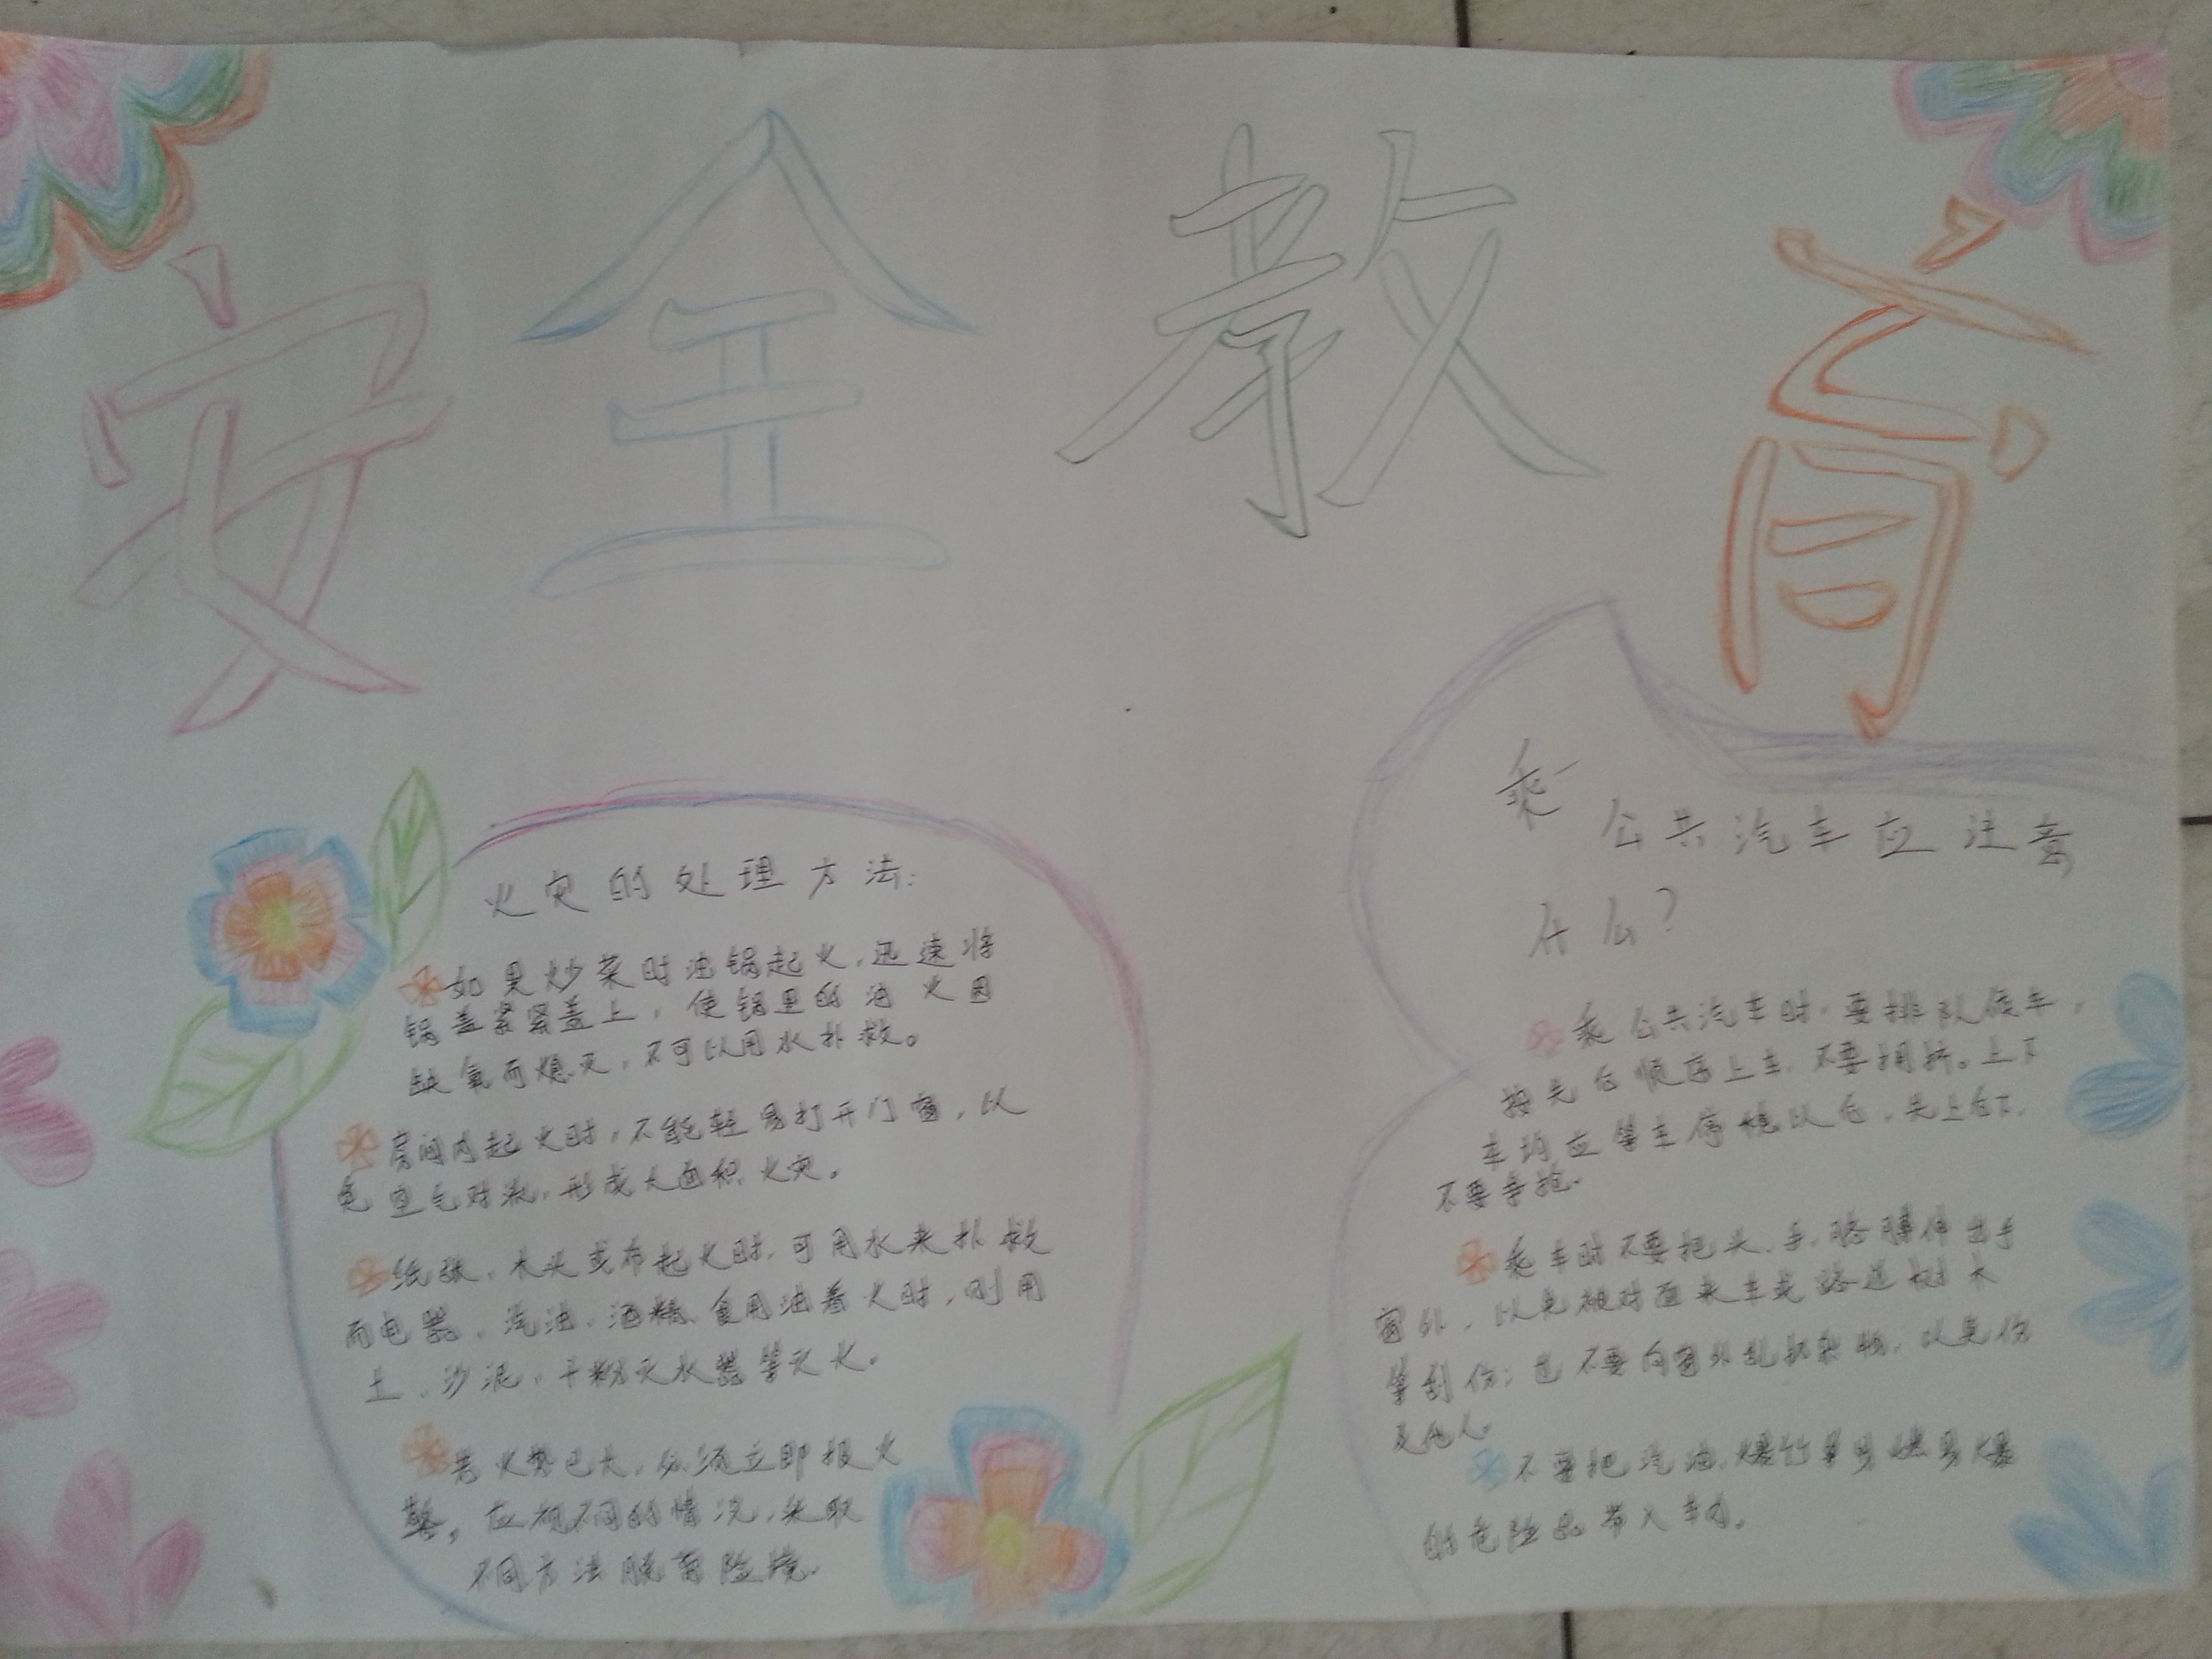 安全教育
火灾的处理方法:
如果炒菜时油锅起火,迅速将
锅盖紧紧盖上,使锅里的油火因
缺氧而熄灭,不可以用水扑救。
房间内起火时,不能轻易打开门窗,以
免空气对流,形成大面积火灾。
纸张、木头或布起火时,可用水来扑救
而电器、汽油、酒精、食用油着火时,则用
土、沙泥、干粉灭火器等灭火。
若火势已大,必须立即报火
警。应视不同的情况,采取
不同方法脱离险境.
乘公共汽车应注意
什么?
乘公共汽车时,要排队候车,
按先后顺序上车,不要拥挤。上下
车均应等车停稳以后,先上后下,
不要争抢.
乘车时不要把头、手、胳膊伸出手
窗外,以免被对面来车或路边树木
等刮伤;也不要向窗外乱扔杂物,以免伤
及他人。
不要把汽油、爆竹等易燃易爆
的危险品带入车内。